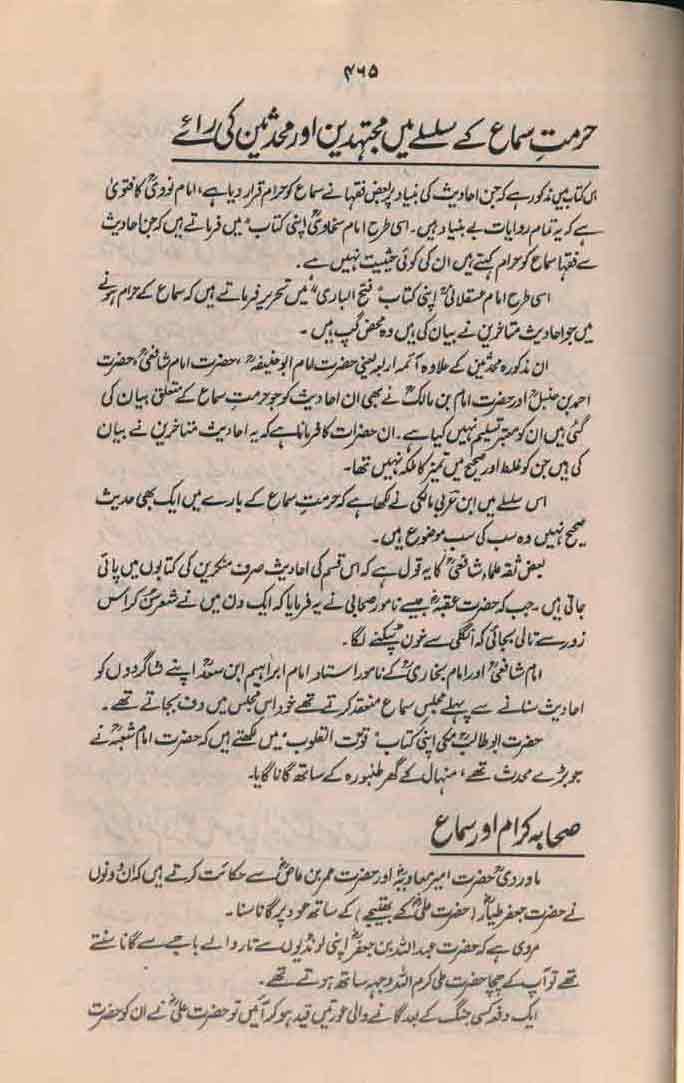 ۴۶۵
حرمتِ سماع کے سلسلے میں مجتہدین اور محدثین کی رائے
اس کتاب میں مذکور ہے کہ جن احادیث کی بنیاد پر بعض فقہا نے سماع کو حرام قرار دیا ہے، امام نودیؒ کا فتویٰ
ہے کہ یہ تمام روایات بے بنیاد ہیں۔ اسی طرح امام سخاویؒ اپنی کتاب میں فرماتے ہیں کہ جن احادیث
سے فقہا سماع کو حرام کہتے ہیں ان کی کوئی حیثیت نہیں ہے۔
اسی طرح امام عسقلانیؒ اپنی کتاب "فتح الباری" میں تحریر فرماتے ہیں کہ سماع کے حرام ہونے
میں جو احادیث متاخرین نے بیان کی ہیں وہ محض گپ ہیں۔
ان مذکورہ محدثین کے علاوہ آئمہ اربعہ یعنی حضرت امام ابو حنیفہؒ، حضرت امام شافعیؒ، حضرت
احمد بن حنبلؒ اور حضرت امام بن مالکؒ نے بھی ان احادیث کو جو حرمتِ سماع کے متعلق بیان کی
گئی ہیں ان کو معتبر تسلیم نہیں کیا ہے۔ ان حضرات کا فرمانا ہے کہ یہ احادیث متاخرین نے بیان
کی ہیں جن کو غلط اور صحیح میں تمیز کا ملکہ نہیں تھا۔
اس سلسلے میں ابن عربی مالکی نے لکھا ہے کہ حرمتِ سماع کے بارے میں ایک بھی حدیث
صحیح نہیں وہ سب کی سب موضوع ہیں۔
بعض ثقہ علماء شافعیؒ کا یہ قول ہے کہ اس قسم کی احادیث صرف منکرین کی کتابوں میں پائی
جاتی ہیں۔ جب کہ حضرت عقبہؓ جیسے نامور صحابی نے یہ فرمایا کہ ایک دن میں نے شعر سن کر اس
زور سے تالی بجائی کہ انگلی سے خون ٹپکنے لگا۔
امام شافعیؒ اور امام بخاریؒ کے نامور استاد امام ابراہیم ابن سعدؒ اپنے شاگردوں کو
احادیث سنانے سے پہلے مجلسِ سماع منعقد کرتے تھے خود اس مجلس میں دف بجاتے تھے۔
حضرت ابو طالبؒ مکی اپنی کتاب "قوت القلوب" میں لکھتے ہیں کہ حضرت امام شعبہؒ نے
جو بڑے محدث تھے، منہال کے گھر طنبورہ کے ساتھ گانا گایا۔
صحابہ کرام اور سماع
ماوردیؒ حضرت امیر معاویہؓ اور حضرت عمر بن عاصؓ سے حکائت کرتے ہیں کہ ان دونوں
نے حضرت جعفر طیارؓ (حضرت علیؓ کے بھتیجے) کے ساتھ عود پر گانا سنا۔
مروی ہے کہ حضرت عبداللہ بن جعفرؓ اپنی لونڈیوں سے تار والے باجے سے گانا سنتے
تھے تو آپ کے چچا حضرت علی کرم اللہ وجہہ ساتھ ہوتے تھے۔
ایک دفعہ کسی جنگ کے بعد گانے والی عورتیں قید ہو کر آئیں تو حضرت علیؓ نے ان کو حضرت